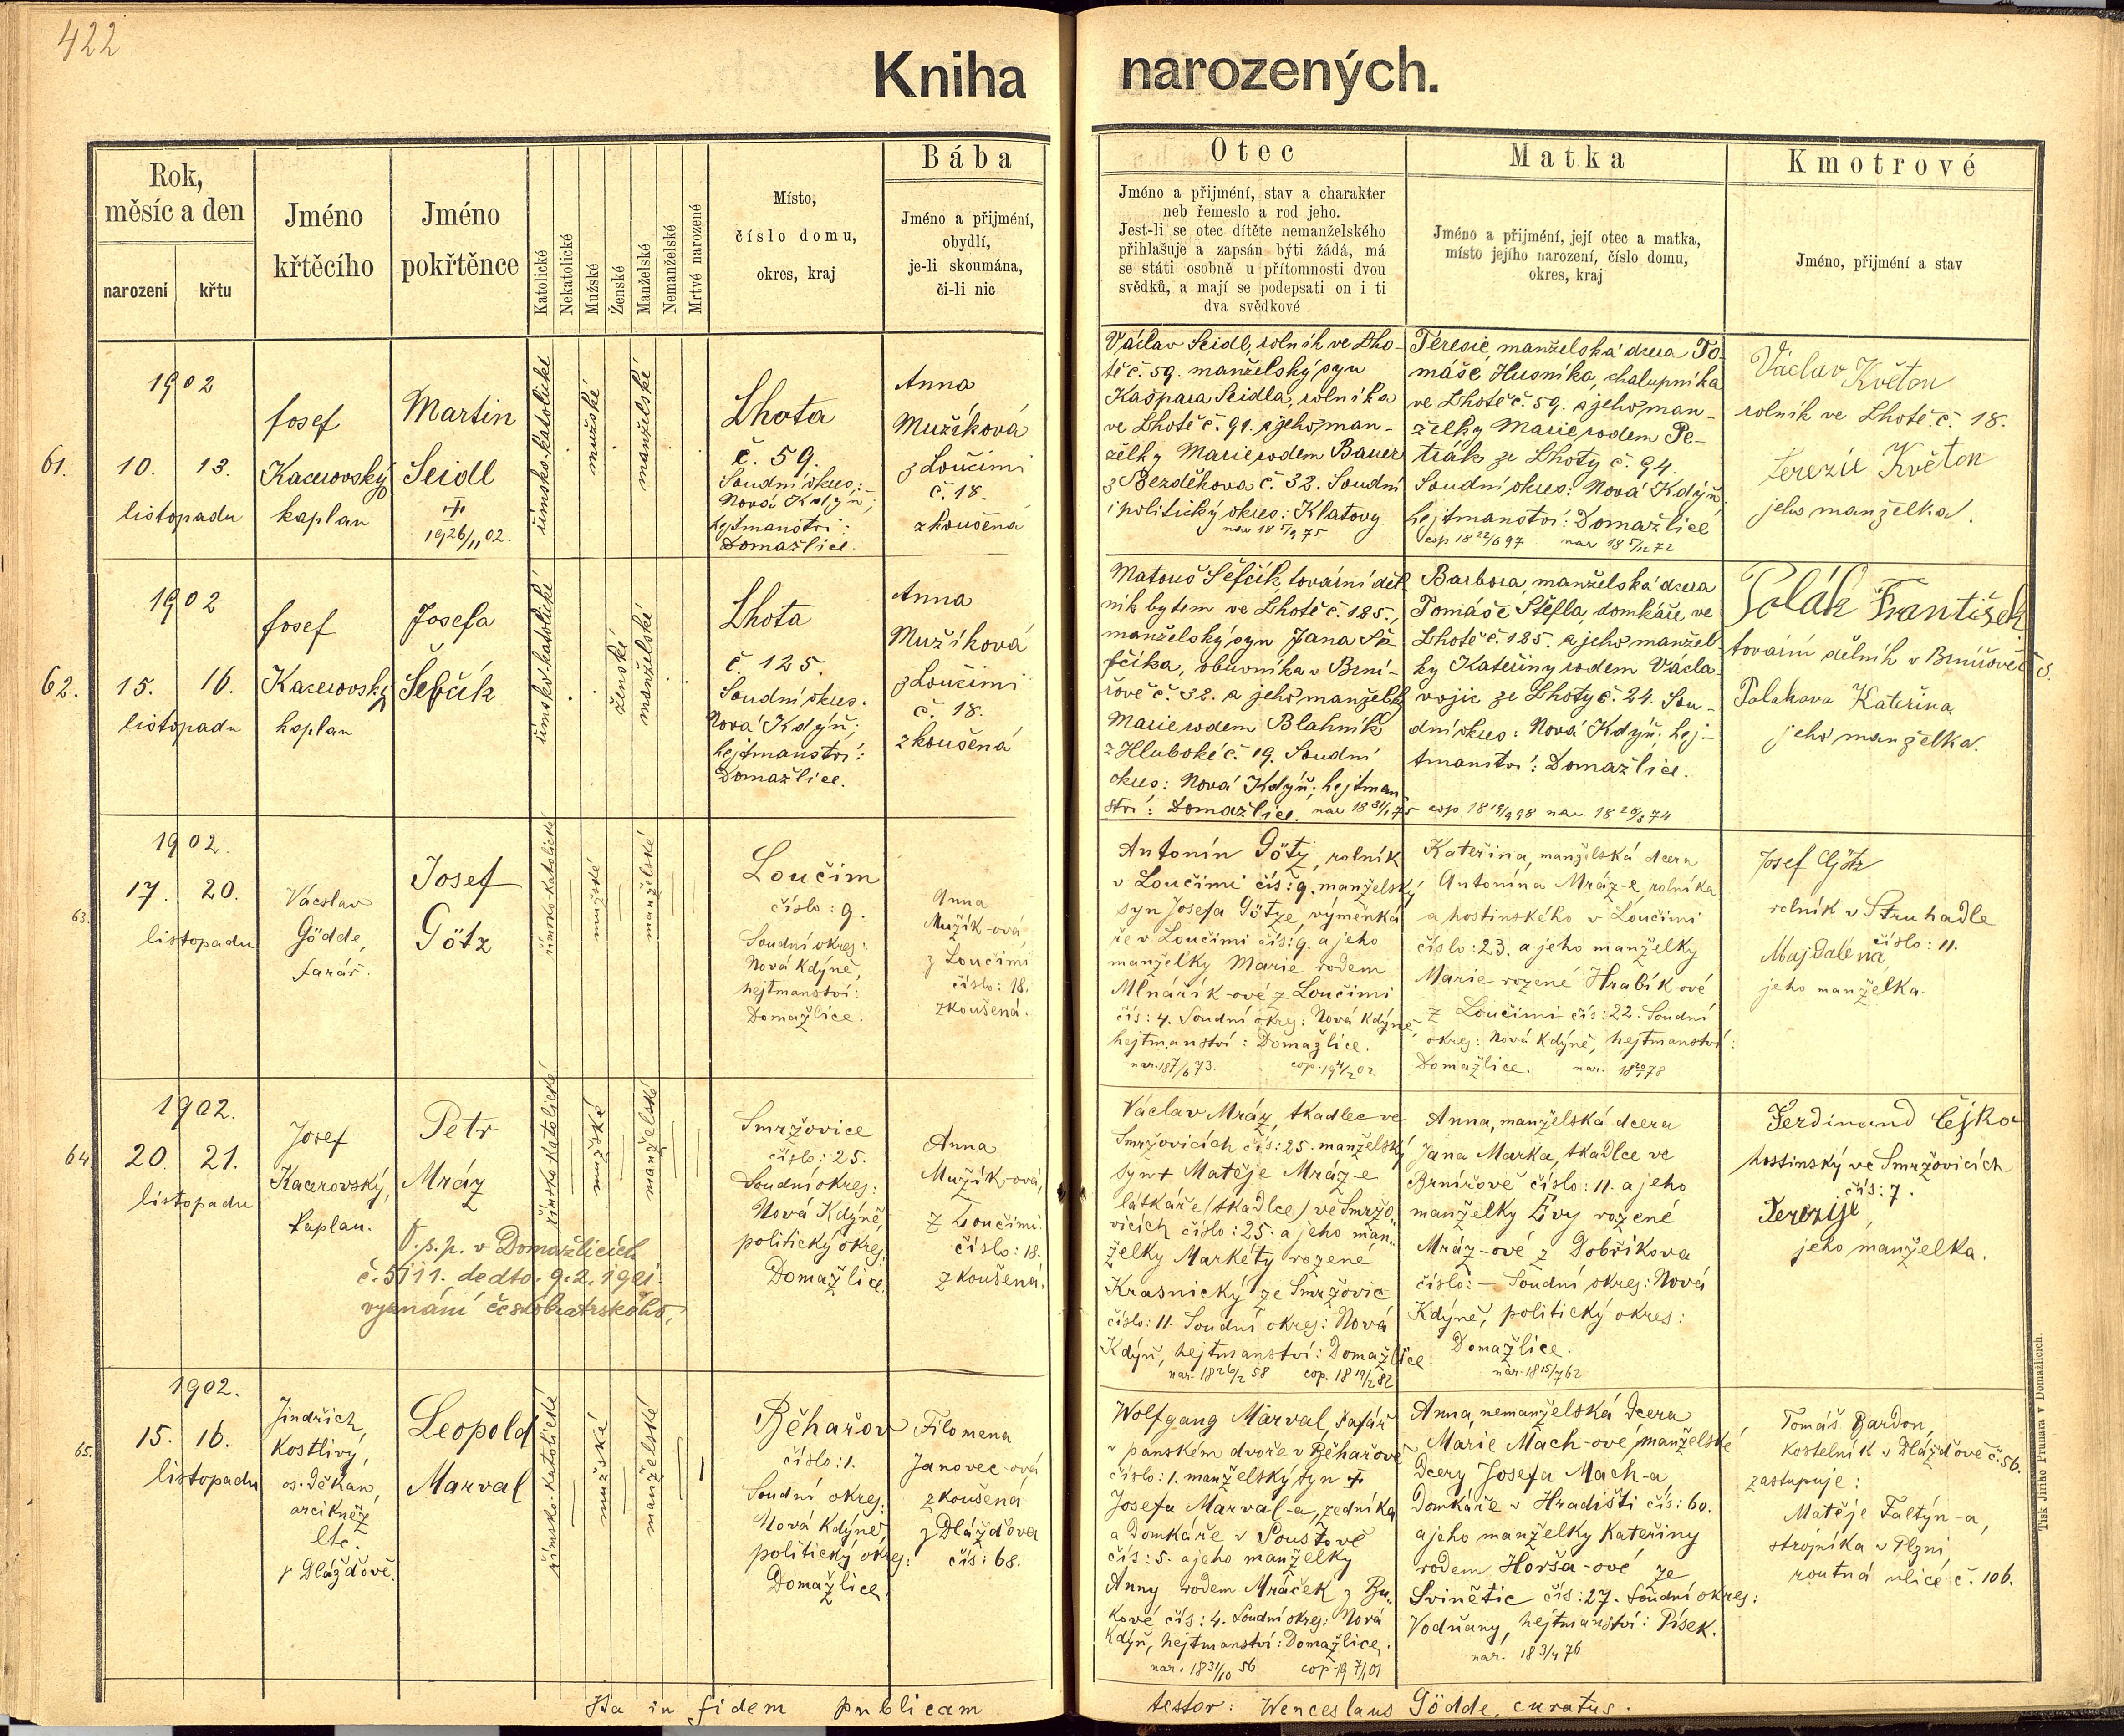 422
Kniha narozených.
Rok,
měsíc a den
narození
křtu
Jméno
křtěcího
Jméno
pokřtěnce
Katolické
Nekatolické
Mužské
Ženské
Manželské
Nemanželské
Mrtvé narozené
Místo,
číslo domu,
okres, kraj
Bába
Jméno a přijmění,
obydlí,
je-li skoumána,
či-li nic
Otec
Jméno a přijmění, stav a charakter
neb řemeslo a rod jeho.
Jest-li se otec dítěte nemanželského
přihlašuje a zapsán býti žádá, má
se státi osobně u přítomnosti dvou
svědků, a mají se podepsati on i ti
dva svědkové
Matka
Jméno a přijmění, její otec a matka,
místo jejího narození, číslo domu,
okres, kraj
Kmotrové
Jméno, přijmění a stav
61.
1902
10. 13.
listopadu
Josef
Kacerovský
kaplan
Martin
Seidl
1926/11 02.
římsko-katolické
mužské
manželské
Lhota
č. 59.
Soudní okres:
Nová Kdýň;
hejtmanství:
Domažlice.
Anna
Mužíková
z Loučimi
č. 18.
zkoušená
Václav Seidl, rolník ve Lho-
tě č. 59. manželský syn
Kašpara Seidla, rolníka
ve Lhotě č. 91. a jeho man-
želky Marie rodem Bauer
z Bezděkova č. 32. Soudní
i politický okres: Klatovy
nar 18 5/9 75
Terezie, manželská dcera To-
máše Husníka, chalupníka
ve Lhotě č. 59. a jeho man-
želky Marie rodem Pe-
trák ze Lhoty č. 94.
Soudní okres: Nová Kdýň
hejtmanství: Domažlice
cop 18 22/6 97 nar 18 5/12 72
Václav Květon
rolník ve Lhotě č. 18.
Terezie Květon
jeho manželka.
62.
1902
15. 16.
listopadu
Josef
Kacerovský
kaplan
Josefa
Šefčík
římsko-katolické
ženské
manželské
Lhota
č. 125.
Soudní okres.
Nová Kdýň;
hejtmanství:
Domažlice.
Anna
Mužíková
z Loučimi
č. 18.
zkoušená
Matouš Šefčík, tovární děl-
ník bytem ve Lhotě č. 185.,
manželský syn Jana Še-
fčíka, obuvníka v Brní-
řově č. 32. a jeho manželky
Marie rodem Blahník
z Hluboké č. 19. Soudní
okres: Nová Kdýň; hejtman
ství: Domažlice. nar 18 31/1 75
Barbora, manželská dcera
Tomáše Štefla, domkáře ve
Lhotě č. 185. a jeho manžel-
ky Kateřiny rodem Václa-
vojic ze Lhoty č. 24. Sou-
dní okres: Nová Kdýň; hej-
tmanství: Domažlice.
cop 18 19/9 98 nar 18 20/8 74
Polák František
tovární dělník v Brnířově č 3.
Polakova Kateřina
jeho manželka.
63.
1902.
17. 20.
listopadu
Václav
Gödde,
farář.
Josef
Götz
římsko-katolické
mužské
manželské
Loučim
číslo: 9.
Soudní okres:
Nová Kdýně,
hejtmanství:
Domažlice.
Anna
Mužík-ová,
z Loučimi
číslo: 18.
zkoušená.
Antonín Götz, rolník
v Loučimi čís: 9. manželský
syn Josefa Götze, výměnká
ře v Loučimi čís: 9. a jeho
manželky Marie rodem
Mlnářík-ové z Loučimi
čís: 4. Soudní okres: Nová Kdýně,
hejtmanství: Domažlice.
nar. 187/6 73. cop. 19 4/2 02
Kateřina, manželská dcera
Antonína Mráz-e, rolníka
a hostinského v Loučimi
číslo: 23. a jeho manželky
Marie rozené Hrabík-ové
z Loučimi čís: 22. Soudní
okres: Nová Kdýně, hejtmanství:
Domažlice. nar. 18 20/1 78
Josef Götz
rolník v Struhadle
číslo: 11.
Majdalena,
jeho manželka.
64.
1902.
20. 21.
listopadu
Josef
Kacerovský,
kaplan.
Petr
Mráz
O. s. p. v Domažlicích
č. 5111. de dto. 9. 2. 1921.
vyznání českobratrského,
římsko-katolické
mužské
manželské
Smržovice
číslo: 25.
Soudní okres:
Nová Kdýně,
politický okres
Domažlice.
Anna
Mužík-ová,
z Loučimi.
číslo: 18.
zkoušená.
Václav Mráz, tkadlec ve
Smržovicích čís: 25. manželský
syn † Matěje Mráz-e
látkáře (tkadlce) ve Smržo-
vicích číslo: 25. a jeho man-
želky Markéty rozené
Krasnický ze Smržovic
číslo: 11. Soudní okres: Nová
Kdýň, hejtmanství: Domažlice.
nar. 18 26/2 58 cop. 18 19/2 82
Anna, manželská dcera
Jana Marka, tkadlce ve
Brnířově číslo: 11. a jeho
manželky Evy rozené
Mráz-ové z Dobříkova
číslo: – Soudní okres: Nová
Kdýně, politický okres:
Domažlice.
nar. 18 15/7 62
Ferdinand Čejka
hostinský ve Smržovicích
čís: 7.
Terezije,
jeho manželka.
65.
1902.
15. 16.
listopadu
Jindřich
Kostlivý,
os. děkan,
arcikněz
etc.
v Dlážďově.
Leopold
Marval
římsko-katolické
mužské
manželské
Běhařov
číslo: 1.
Soudní okres:
Nová Kdýně,
politický okres:
Domažlice.
Filomena
Janovec-ová
zkoušená
z Dlážďova
čís: 68.
Wolfgang Marval, šafář
v panském dvoře v Běhařově
číslo: 1. manželský syn †
Josefa Marval-a, zedníka
a domkáře v Poustově
čís: 5. a jeho manželky
Anny rodem Mráček z Bu-
kové čís: 4. Soudní okres: Nová
Kdýň, hejtmanství: Domažlice.
nar. 18 31/10 56 cop. 19 7/1 01
Anna, nemanželská dcera
Marie Mach-ové, manželské
dcery Josefa Mach-a,
domkáře v Hradišti čís: 60.
a jeho manželky Kateřiny
rodem Horša-ové ze
Svinětic čís: 27. Soudní okres:
Vodňany, hejtmanství: Písek.
nar. 18 3/4 76
Tomáš Bardon,
kostelník v Dlážďově č. 56.
zastupuje:
Matěje Faltýn-a,
strojníka v Plzni
routná ulice č. 106.
Ita in fidem publicam
testor: Wenceslaus Gödde, curatus.
Tisk Jiřího Prunara v Domažlicích.